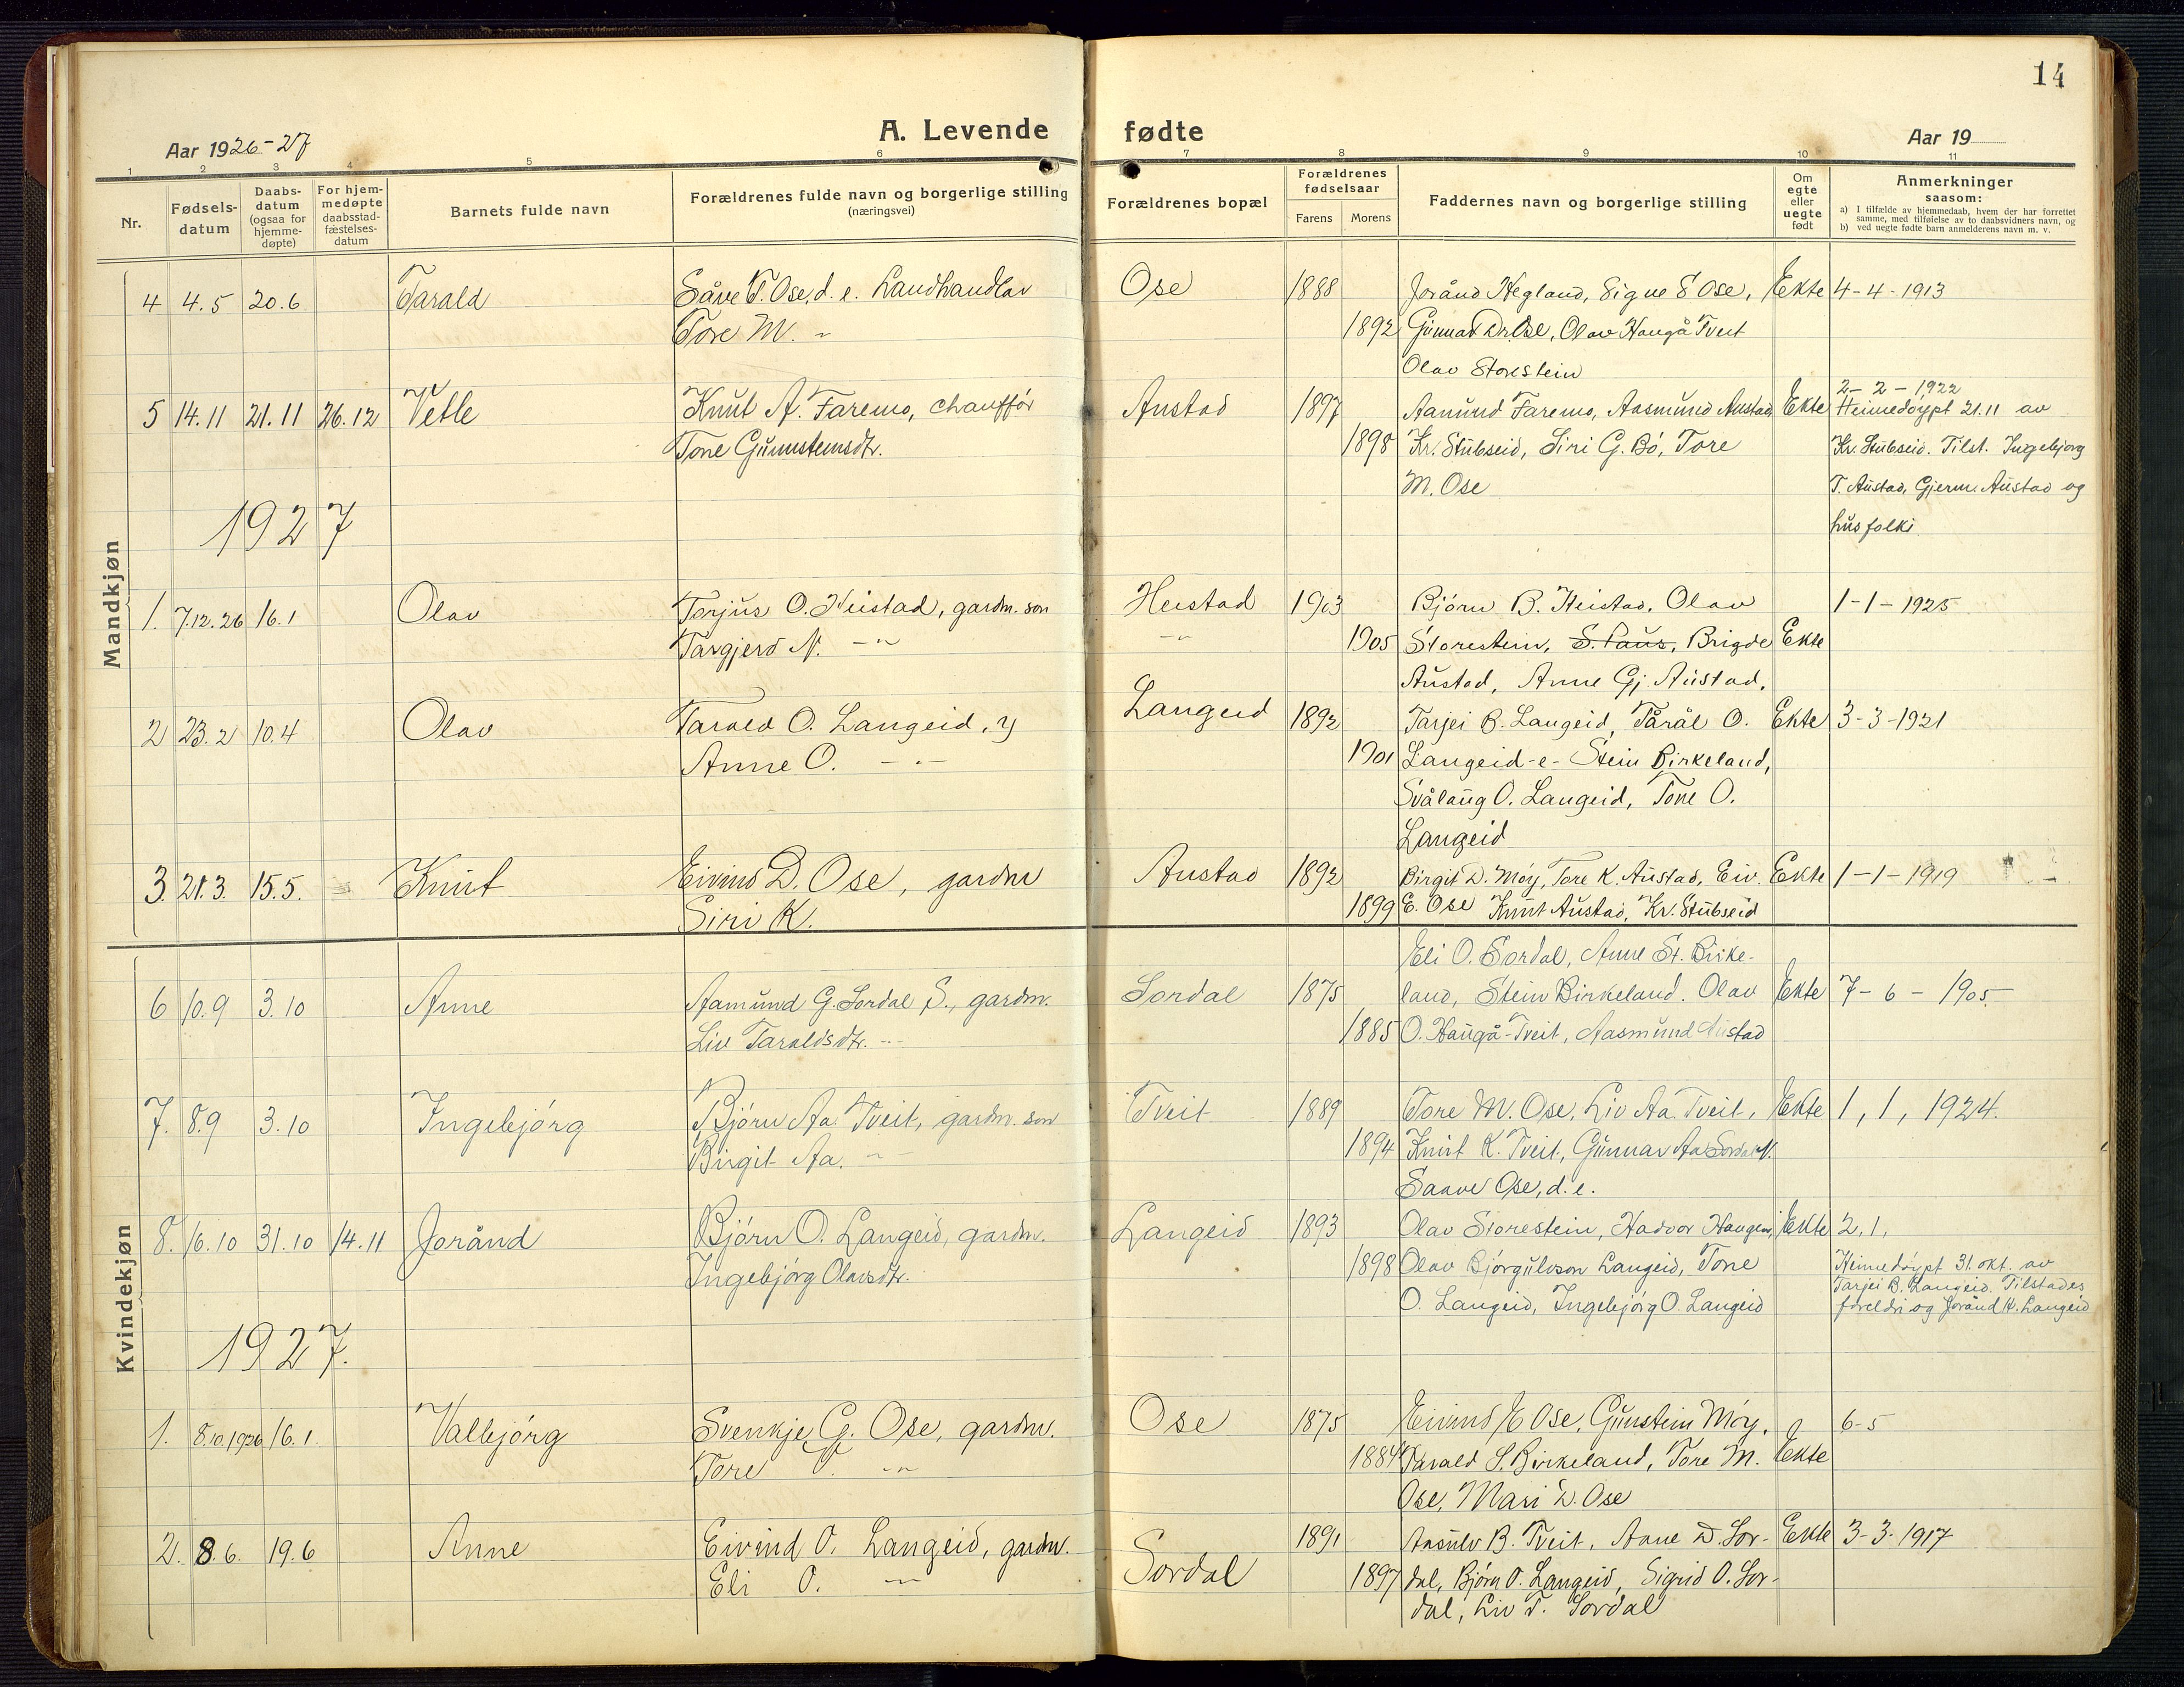 14
Aar 1926-27
A. Levende fødte
Aar 19
1 2 3 4 5 6 7 8 9 10 11
Nr.
Fødsels-
datum
Daabs-
datum
(ogsaa for
hjemme-
døpte)
For hjem-
medøpte
daabsstad-
fæstelses-
datum
Barnets fulde navn
Forældrenes fulde navn og borgerlige stilling
(næringsvei)
Forældrenes bopæl
Forældrenes
fødselsaar
Farens Morens
Faddernes navn og borgerlige stilling
Om
egte
eller
uegte
født
Anmerkninger
saasom:
a) I tilfælde av hjemmedaab, hvem der har forrettet
samme, med tilføielse av to daabsvidners navn, og
b) ved uegte fødte barn anmelderens navn m. v.
Mandkjøn
4 4.5 20.6 Tarald Såve T. Ose, d. e. Landhandlar Ose 1888 Joránd Hegland, Signe S Ose, Ekte 4-4-1913
Tore M. -"- 1892 Gunnar Dr. Ose, Olav Haugå Tveit
Olav Storestein
5 14.11 21.11 26.12 Vetle Knut A. Faremo, chauffór Austad 1897 Aamund Faremo, Aasmund Austad, Ekte 2-2-1922
Heimedøypt 21.11 av
Tone Gunnsteinsdtr. 1898 Kr. Stubseid, Siri G. Bó, Tore Kr. Stubseid. Tilst. Ingebjorg
M. Ose T. Austad, Gjerm. Austad og
husfolki
1927
1. 7.12.26 16.1 Olav Torjus O. Heistad, gardm. son Heistad 1903 Bjórn B. Heistad, Olav 1-1-1925
Targjerd N. -"- -"- 1905 Storestein, S. Paus, Brigde Ekte
Austad, Anne Gj. Austad,
2 23.2 10.4 Olav Tarald O. Langeid, y Langeid 1892 Tarjei B. Langeid, Tårål O. Ekte 3-3-1921
Anne O. -"- 1901 Langeid -e- Stein Birkeland,
Svålaug O. Langeid, Tone O.
Langeid
3. 21.3. 15.5. Knut Eivind D. Ose, gardm Austad 1892 Birgit D. Móy, Tore K. Austad, Eiv. Ekte 1-1-1919
Siri K. 1899 E. Ose Knut Austad, Kr. Stubseid
Kvindekjøn
Eli O. Sordal, Anne St. Birke-
6 10.9 3.10 Anne Aamund G. Sordal S., gardm. Sordal 1875 land, Stein Birkeland. Olav Ekte 7-6-1905.
Liv Taraldsdtr. -"- 1885 O. Haugå-Tveit, Aasmund Austad
7. 8.9 3.10 Ingebjórg Bjórn Aa. Tveit, gardm. son Tveit 1889 Tore M. Ose, Liv Aa. Tveit, Ekte 1, 1, 1924.
Birgit Aa. -"- 1894 Knut K. Tveit, Gunnar Aa Sordal N.
Saave Ose, d. e.
8. 16.10 31.10 14.11 Joránd Bjórn O. Langeid, gardm. Langeid 1893 Olav Storestein, Hadvor Haugen, Ekte 2, 1,
Ingebjórg Olavsdtr. 1898 Olav Bjórgulvson Langeid, Tone Heimedóypt 31. okt. av
Tarjei B. Langeid. Tilstades
O. Langeid, Ingebjórg O. Langeid foreldri og Joránd K. Langeid
1927.
1. 8.10.1926 16.1. Valbjórg Svenkje G. Ose, gardm. Ose 1875 Eivind E Ose, Gunstein Móy, 6-5
Tore T. -"- 1884 Tarald S. Birkeland, Tore M. Ekte
Ose, Mari D. Ose
2. 8.6. 19.6 Anne Eivind O. Langeid, gardm. Sordal 1891 Aasulv B. Tveit, Anne D. Sor- Ekte 3-3-1917
Eli O. -"- 1897 dal, Bjórn O. Langeid, Sigrid O. Sor-
dal, Liv T. Sordal